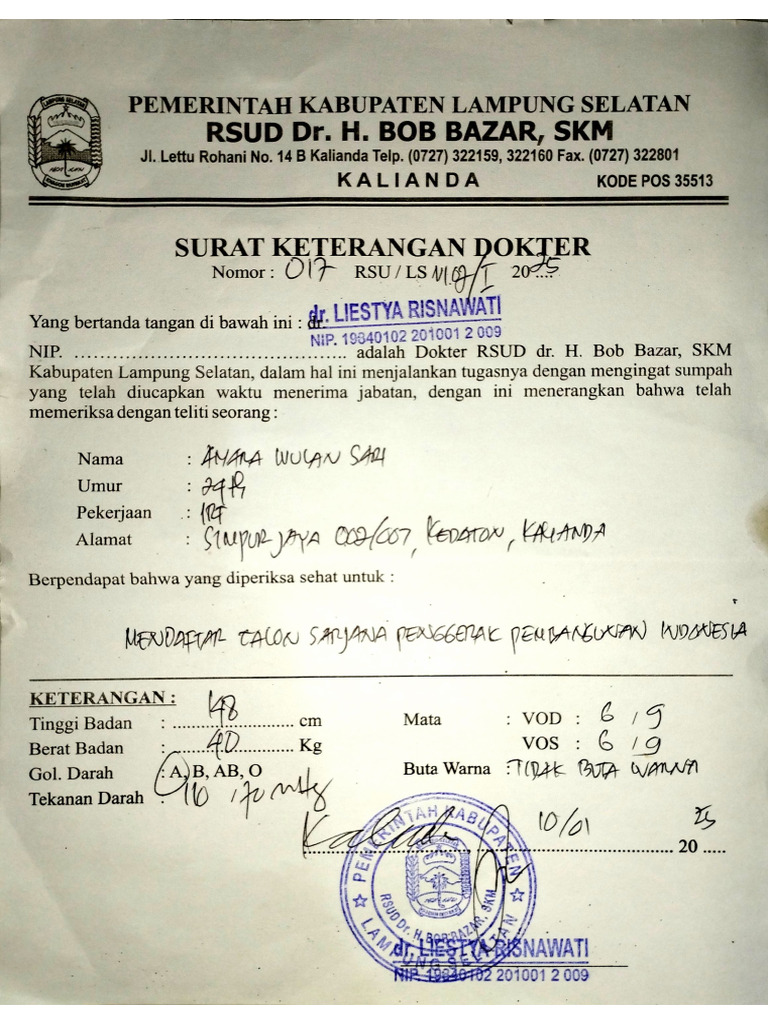 PEMERINTAH KABUPATEN LAMPUNG SELATAN
RSUD Dr. H. BOB BAZAR, SKM
Jl. Lettu Rohani No. 14 B Kalianda Telp. (0727) 322159, 322160 Fax. (0727) 322801
KALIANDA KODE POS 35513
SURAT KETERANGAN DOKTER
Nomor : 017 RSU / LS VI.02/I 2025
Yang bertanda tangan di bawah ini : dr. dr. LIESTYA RISNAWATI
NIP. 19840102 201001 2 009
NIP. ............................................. adalah Dokter RSUD dr. H. Bob Bazar, SKM
Kabupaten Lampung Selatan, dalam hal ini menjalankan tugasnya dengan mengingat sumpah
yang telah diucapkan waktu menerima jabatan, dengan ini menerangkan bahwa telah
memeriksa dengan teliti seorang :
Nama : AMARA WULAN SARI
Umur :
Pekerjaan : IRT
Alamat : SIMPUR JAYA 002/007, KEDATON, KALIANDA
Berpendapat bahwa yang diperiksa sehat untuk :
MENDAFTAR CALON SARJANA PENGGERAK PEMBANGUNAN INDONESIA
KETERANGAN :
Tinggi Badan : 148 cm
Berat Badan : 40 Kg
Gol. Darah : A, B, AB, O
Tekanan Darah : 110 / 70 mmHg
Mata : VOD : 6 / 9
VOS : 6 / 9
Buta Warna : TIDAK BUTA WARNA
10/01 20 25
PEMERINTAH KABUPATEN
RSUD Dr. H. BOB BAZAR, SKM
LAMPUNG SELATAN
dr. LIESTYA RISNAWATI
NIP. 19840102 201001 2 009